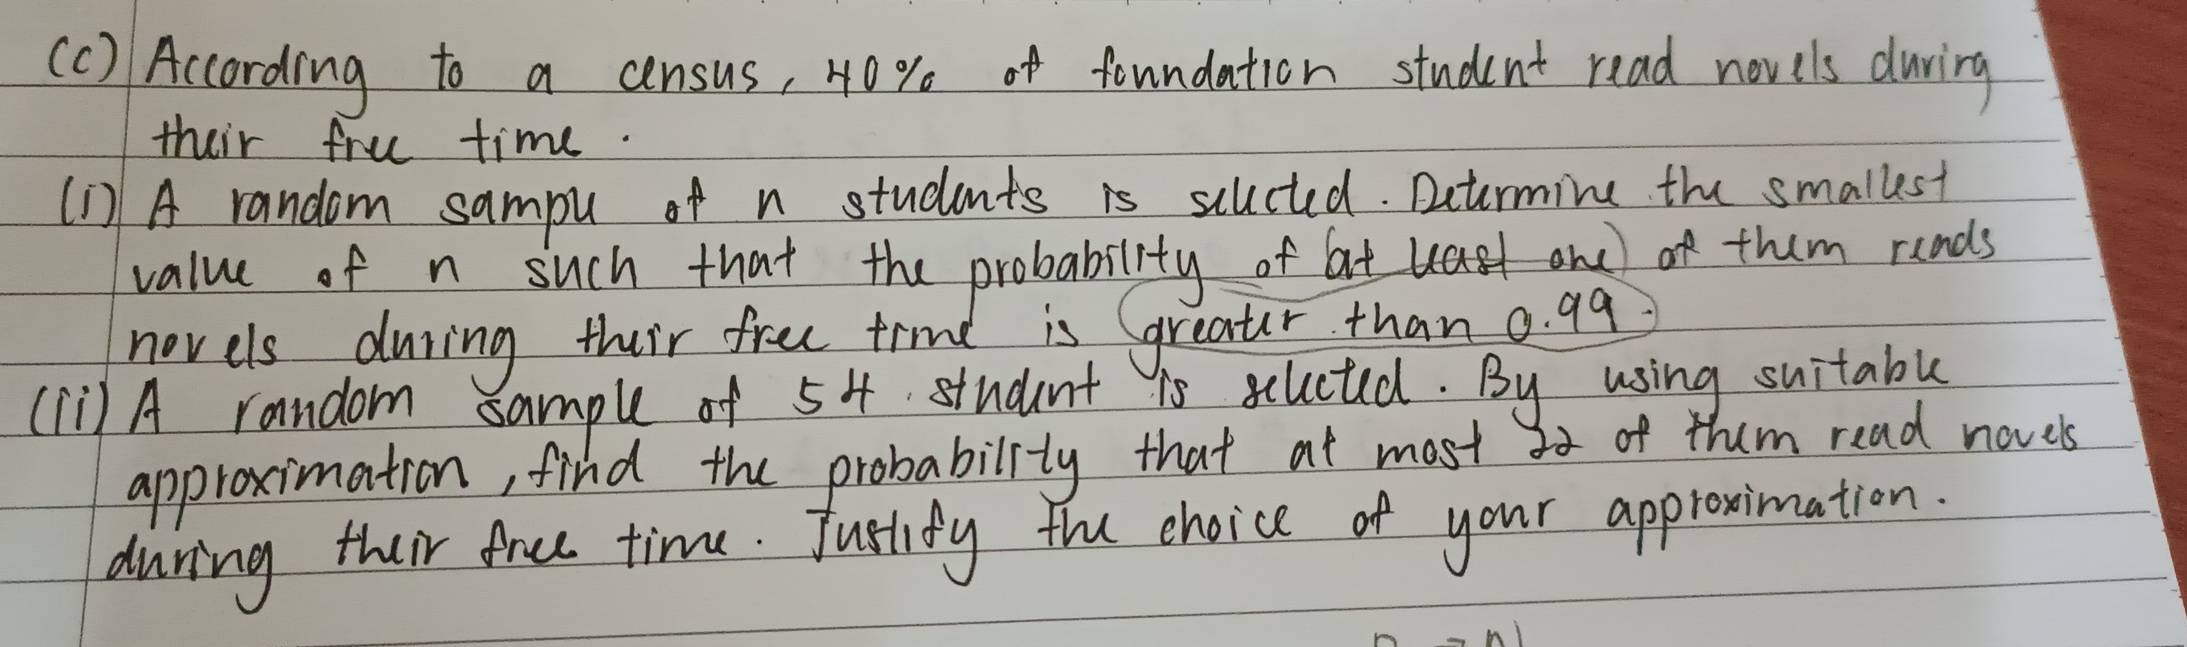 (c) According to a census, 40% of foundation student read novels during
their free time.
(i) A random sample of n students is selected. Determine the smallest
value of n such that the probability of (at least one) of them reads
novels during their free time is greater than 0.99.
(ii) A random sample of 54 student is selected. By using suitable
approximation, find the probability that at most 22 of them read novels
during their free time. Justify the choice of your approximation.